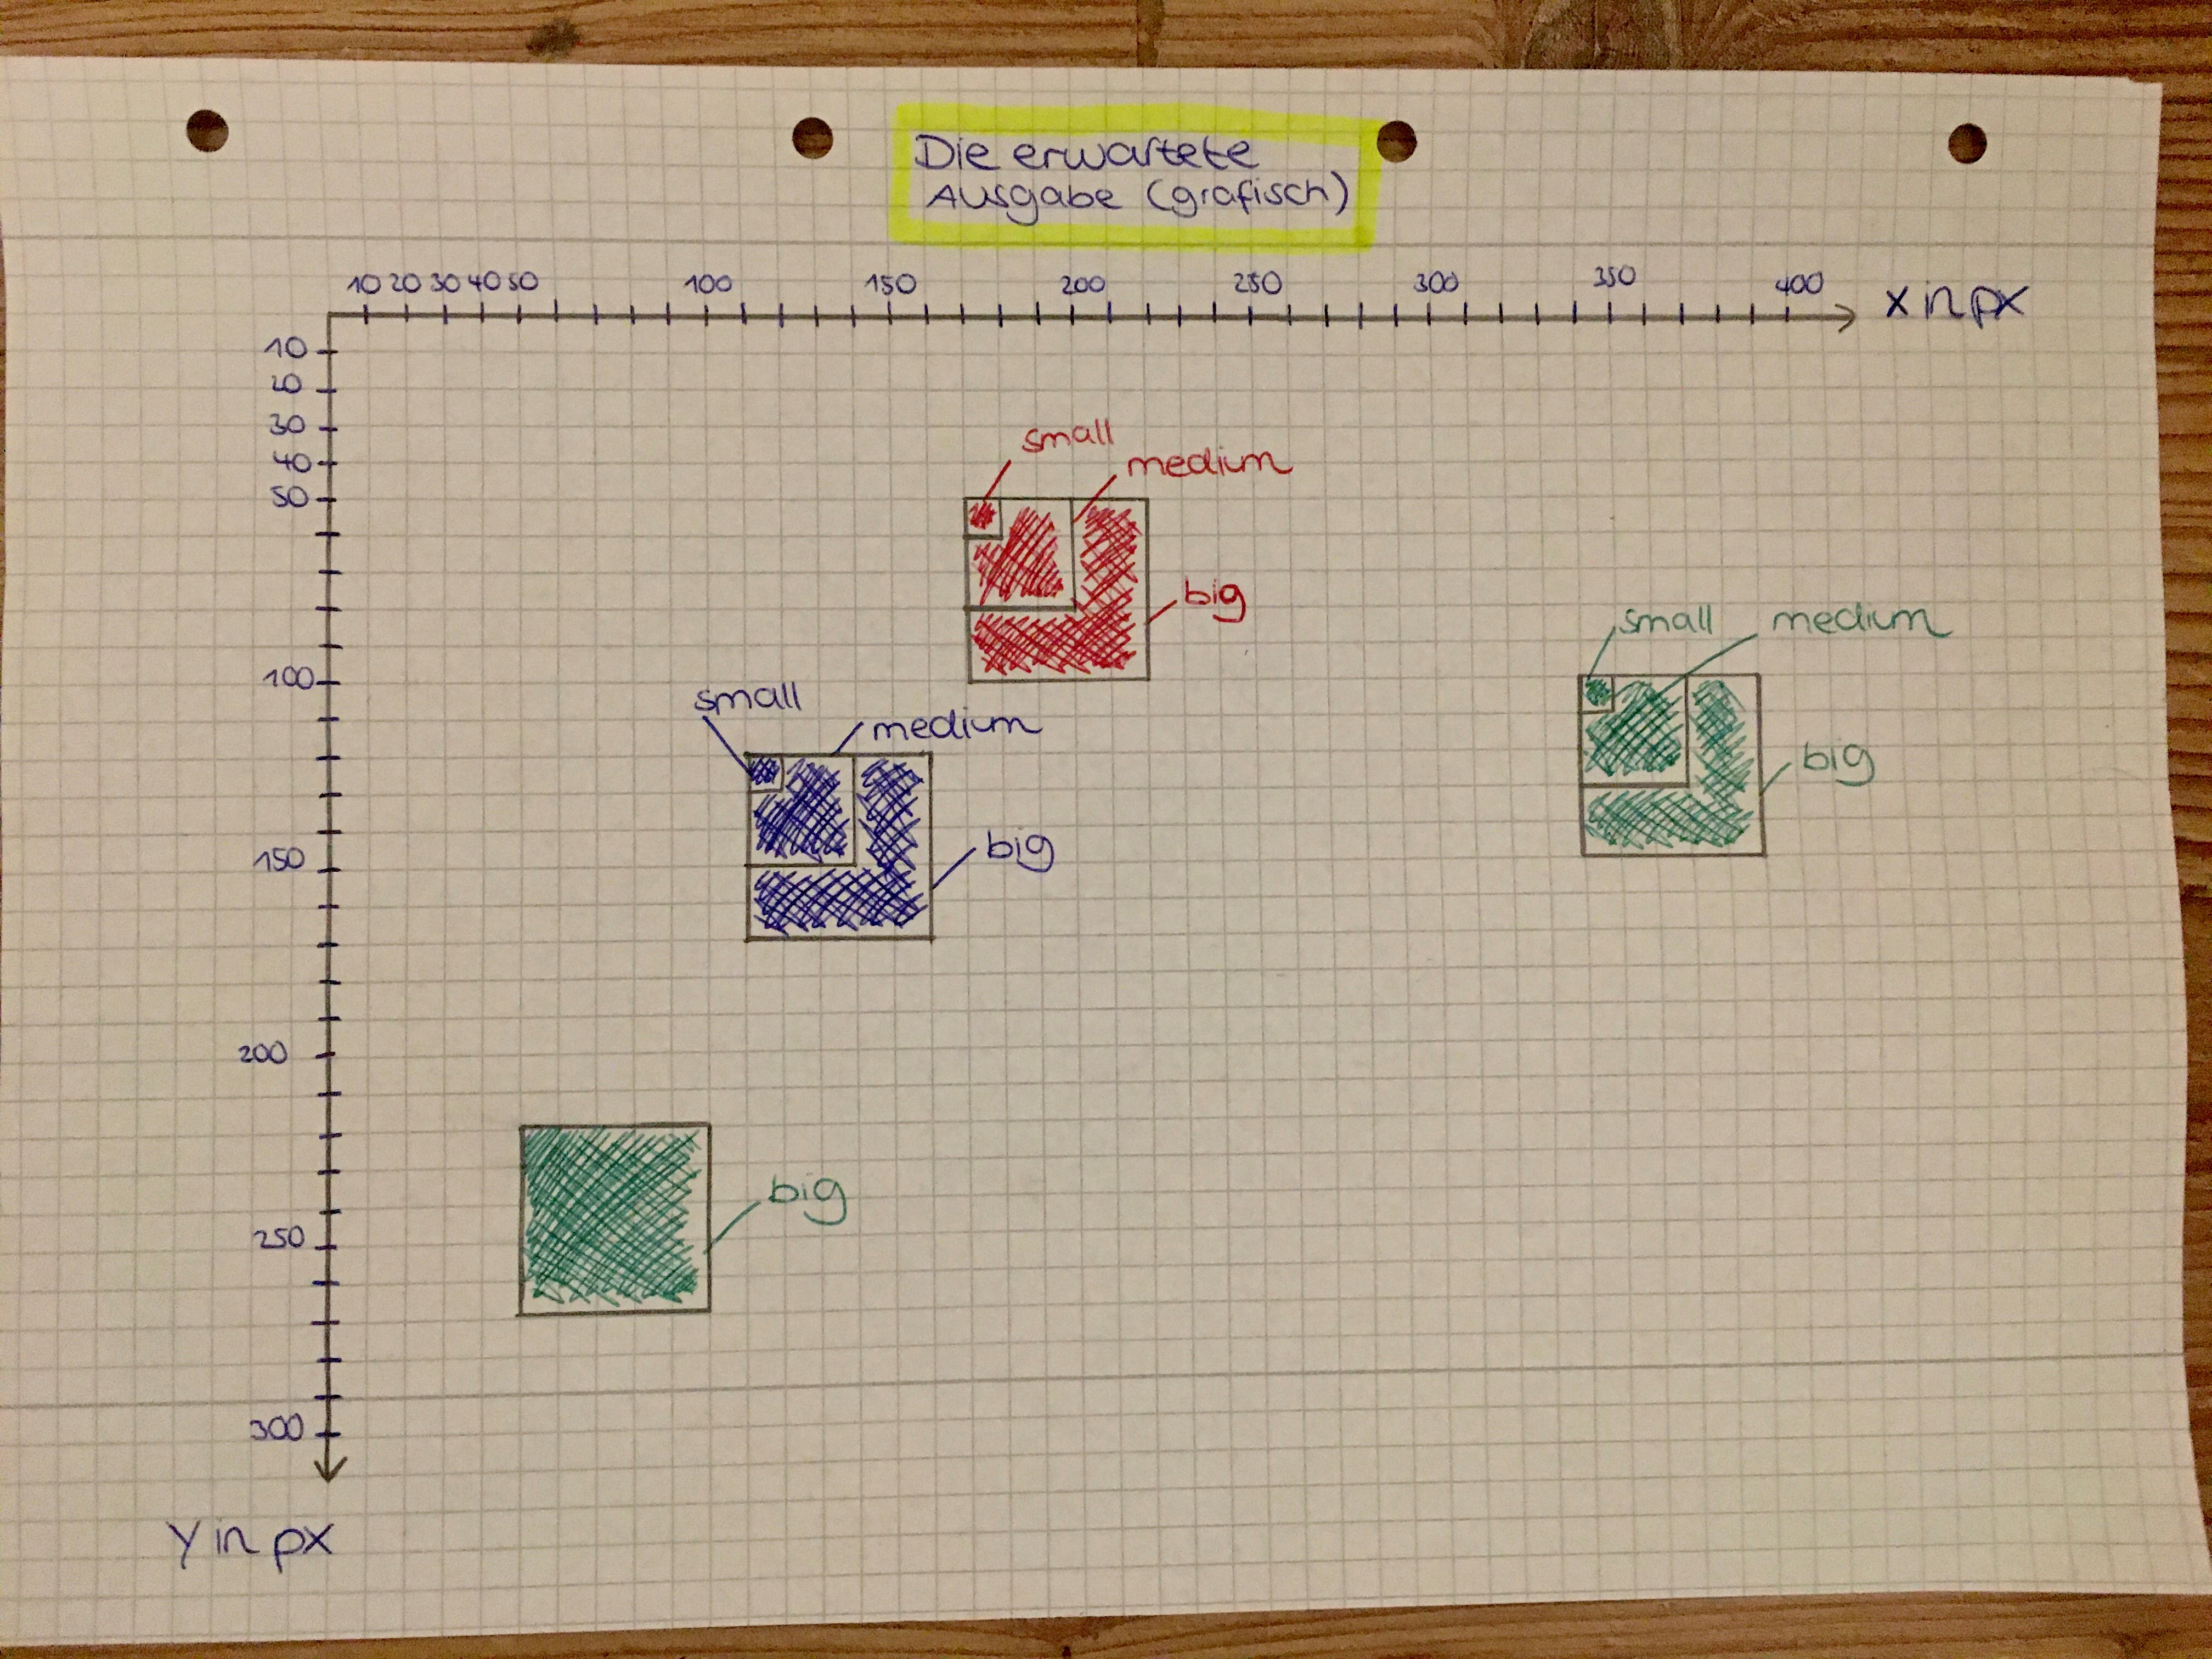 Die erwartete
Ausgabe (grafisch)
10 20 30 40 50 100 150 200 250 300 350 400 x in px
10
20
30
40
50
100
150
200
250
300
y in px
small
medium
big
small
medium
big
small
medium
big
big